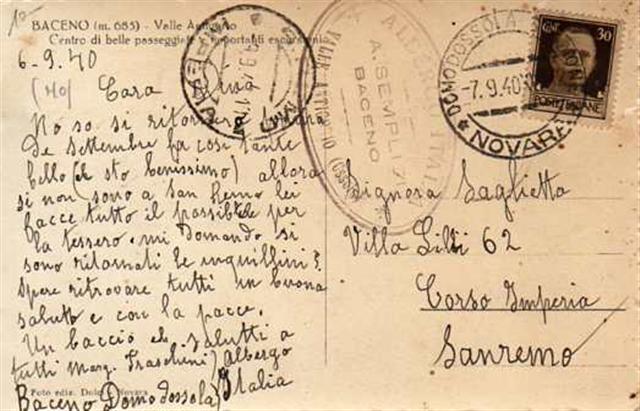 BACENO (m. 685) - Valle Antigorio
Centro di belle passeggiate e importanti escursioni
6-9.40
(No) Cara
No so si ritornero
De Settembre fa cosi tante
bello (e sto benissimo) allora
si non sono a San Remo lei
facce tutto il possibele per
la tessero. mi domando si
sono ritornati le inquillini?
Spere ritrovare tutti in buona
saluto e con la pacce.
Un baccio e salutti a
tutti Marg. Fraschini) albergo
Italia
Baceno Domodossola)
Foto ediz. Novara
ITALIA
A. SEMPLI
BACENO
VALLE ANTIGORIO (OSSOLA)
DOMODOSSOLA
-7.9.40
* NOVARA
CENT. 30
POSTE ITALIANE
Signora Saglietto
Villa Lilli 62
Corso Imperia
Sanremo